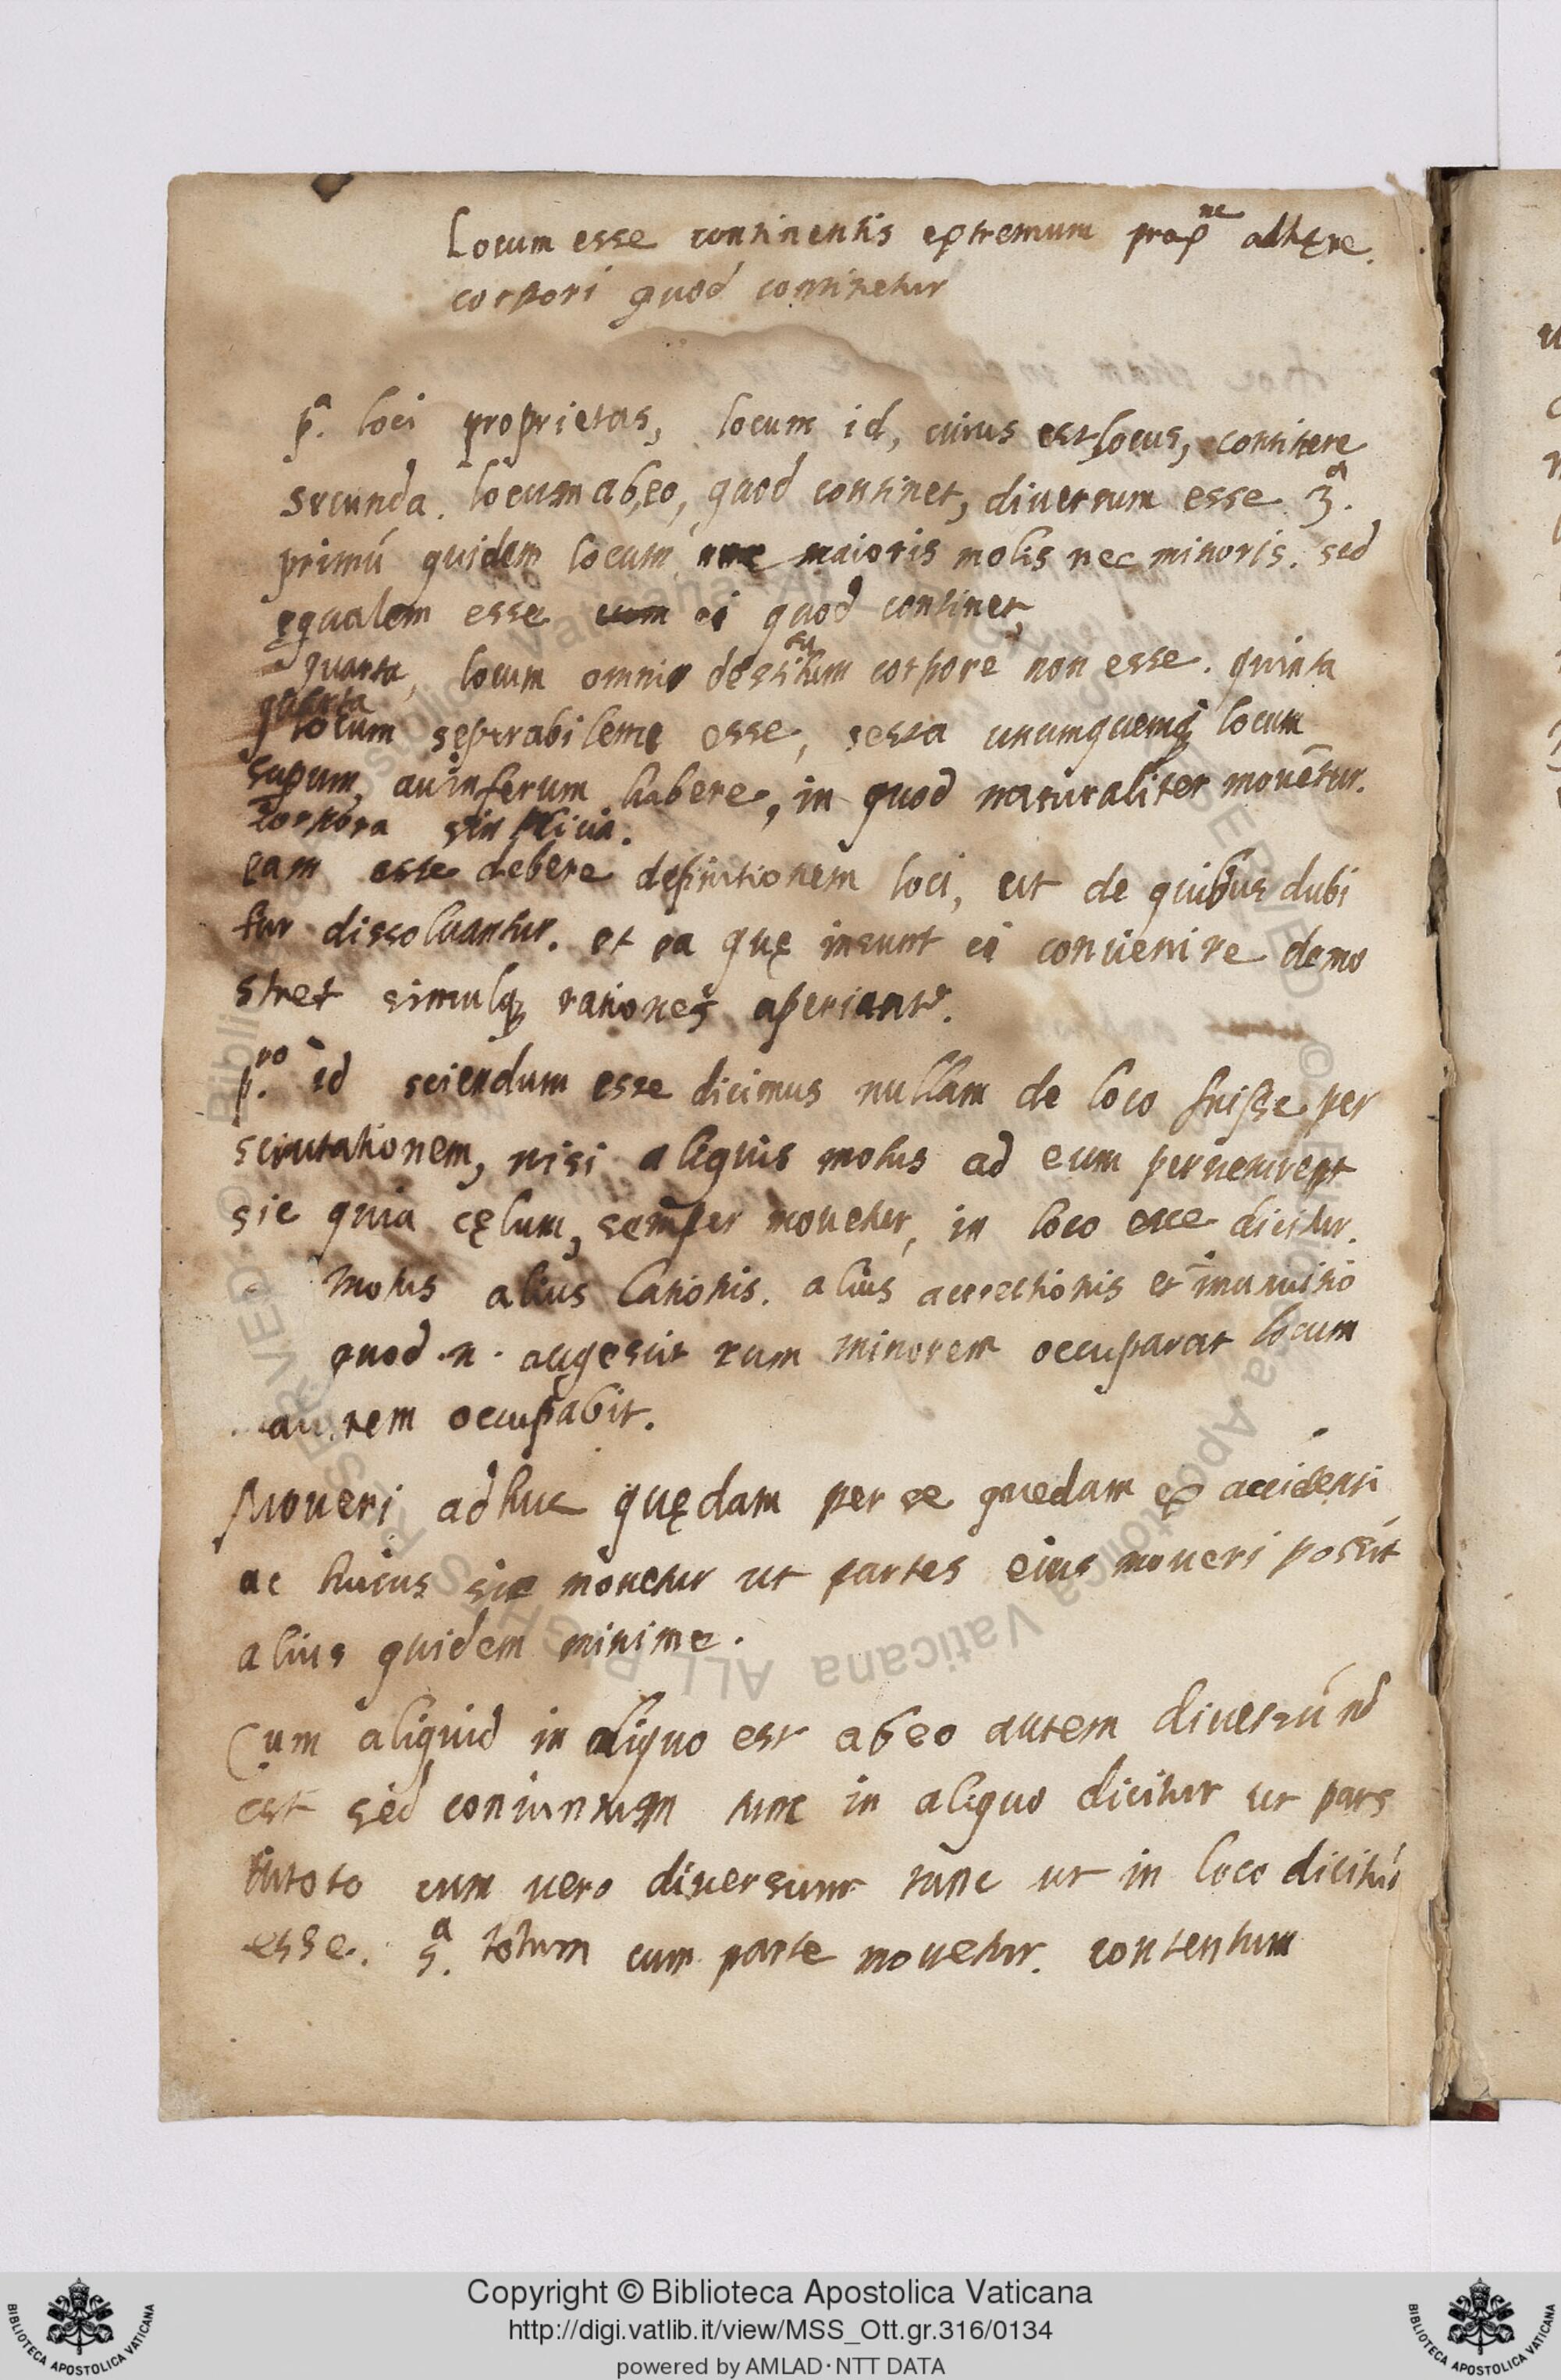 Locum esse continentis extremum prox^ne adhęre.
corpori quod continetur
p^a. loci proprietas, locum id, cuius est locus, continere
secunda. locum ab eo, quod continet, diversum esse 3^a.
primú quidem locum nec maioris molis nec minoris. sed
ęqualem esse cum ei quod continet,
quarta, locum omnio destitutum corpore non esse. quinta
quarta
locum seperabilem esse, sexta unumquemq locum
supum, au inferum habere, in quod naturaliter movẽtur.
corpora simplicia.
eam esse debere definitionem loci, ut de quibus dubi
tur dissoluantur. et ea quę insunt ei convenire demo
stret simulq rationes aperiant^r.
p.^ro id sciendum esse dicimus nullam de loco fuisse per
scrutationem, nisi aliquis motus ad eum
sic quia cęlum, semper movetur, in loco esse dicitur.
Motus alius lationis. alius accrectionis et
quod .n. augescit cum minorem occuparat locum
maiorem occupabit.
Moveri adhuc quędam per se quedam ex accidenti
ac huius sic movetur ut partes eius moveri possút
alius quidem minime.
Cum aliquid in aliquo est ab eo autem diversú nõ
est sed coniunctum tunc in aliquo dicitur ut pars
in toto cum vero diversum tunc ut in loco dicitur
esse. 5^a. totum cum parte movetur. contentum
Copyright © Biblioteca Apostolica Vaticana
http://digi.vatlib.it/view/MSS_Ott.gr.316/0134
powered by AMLAD·NTT DATA